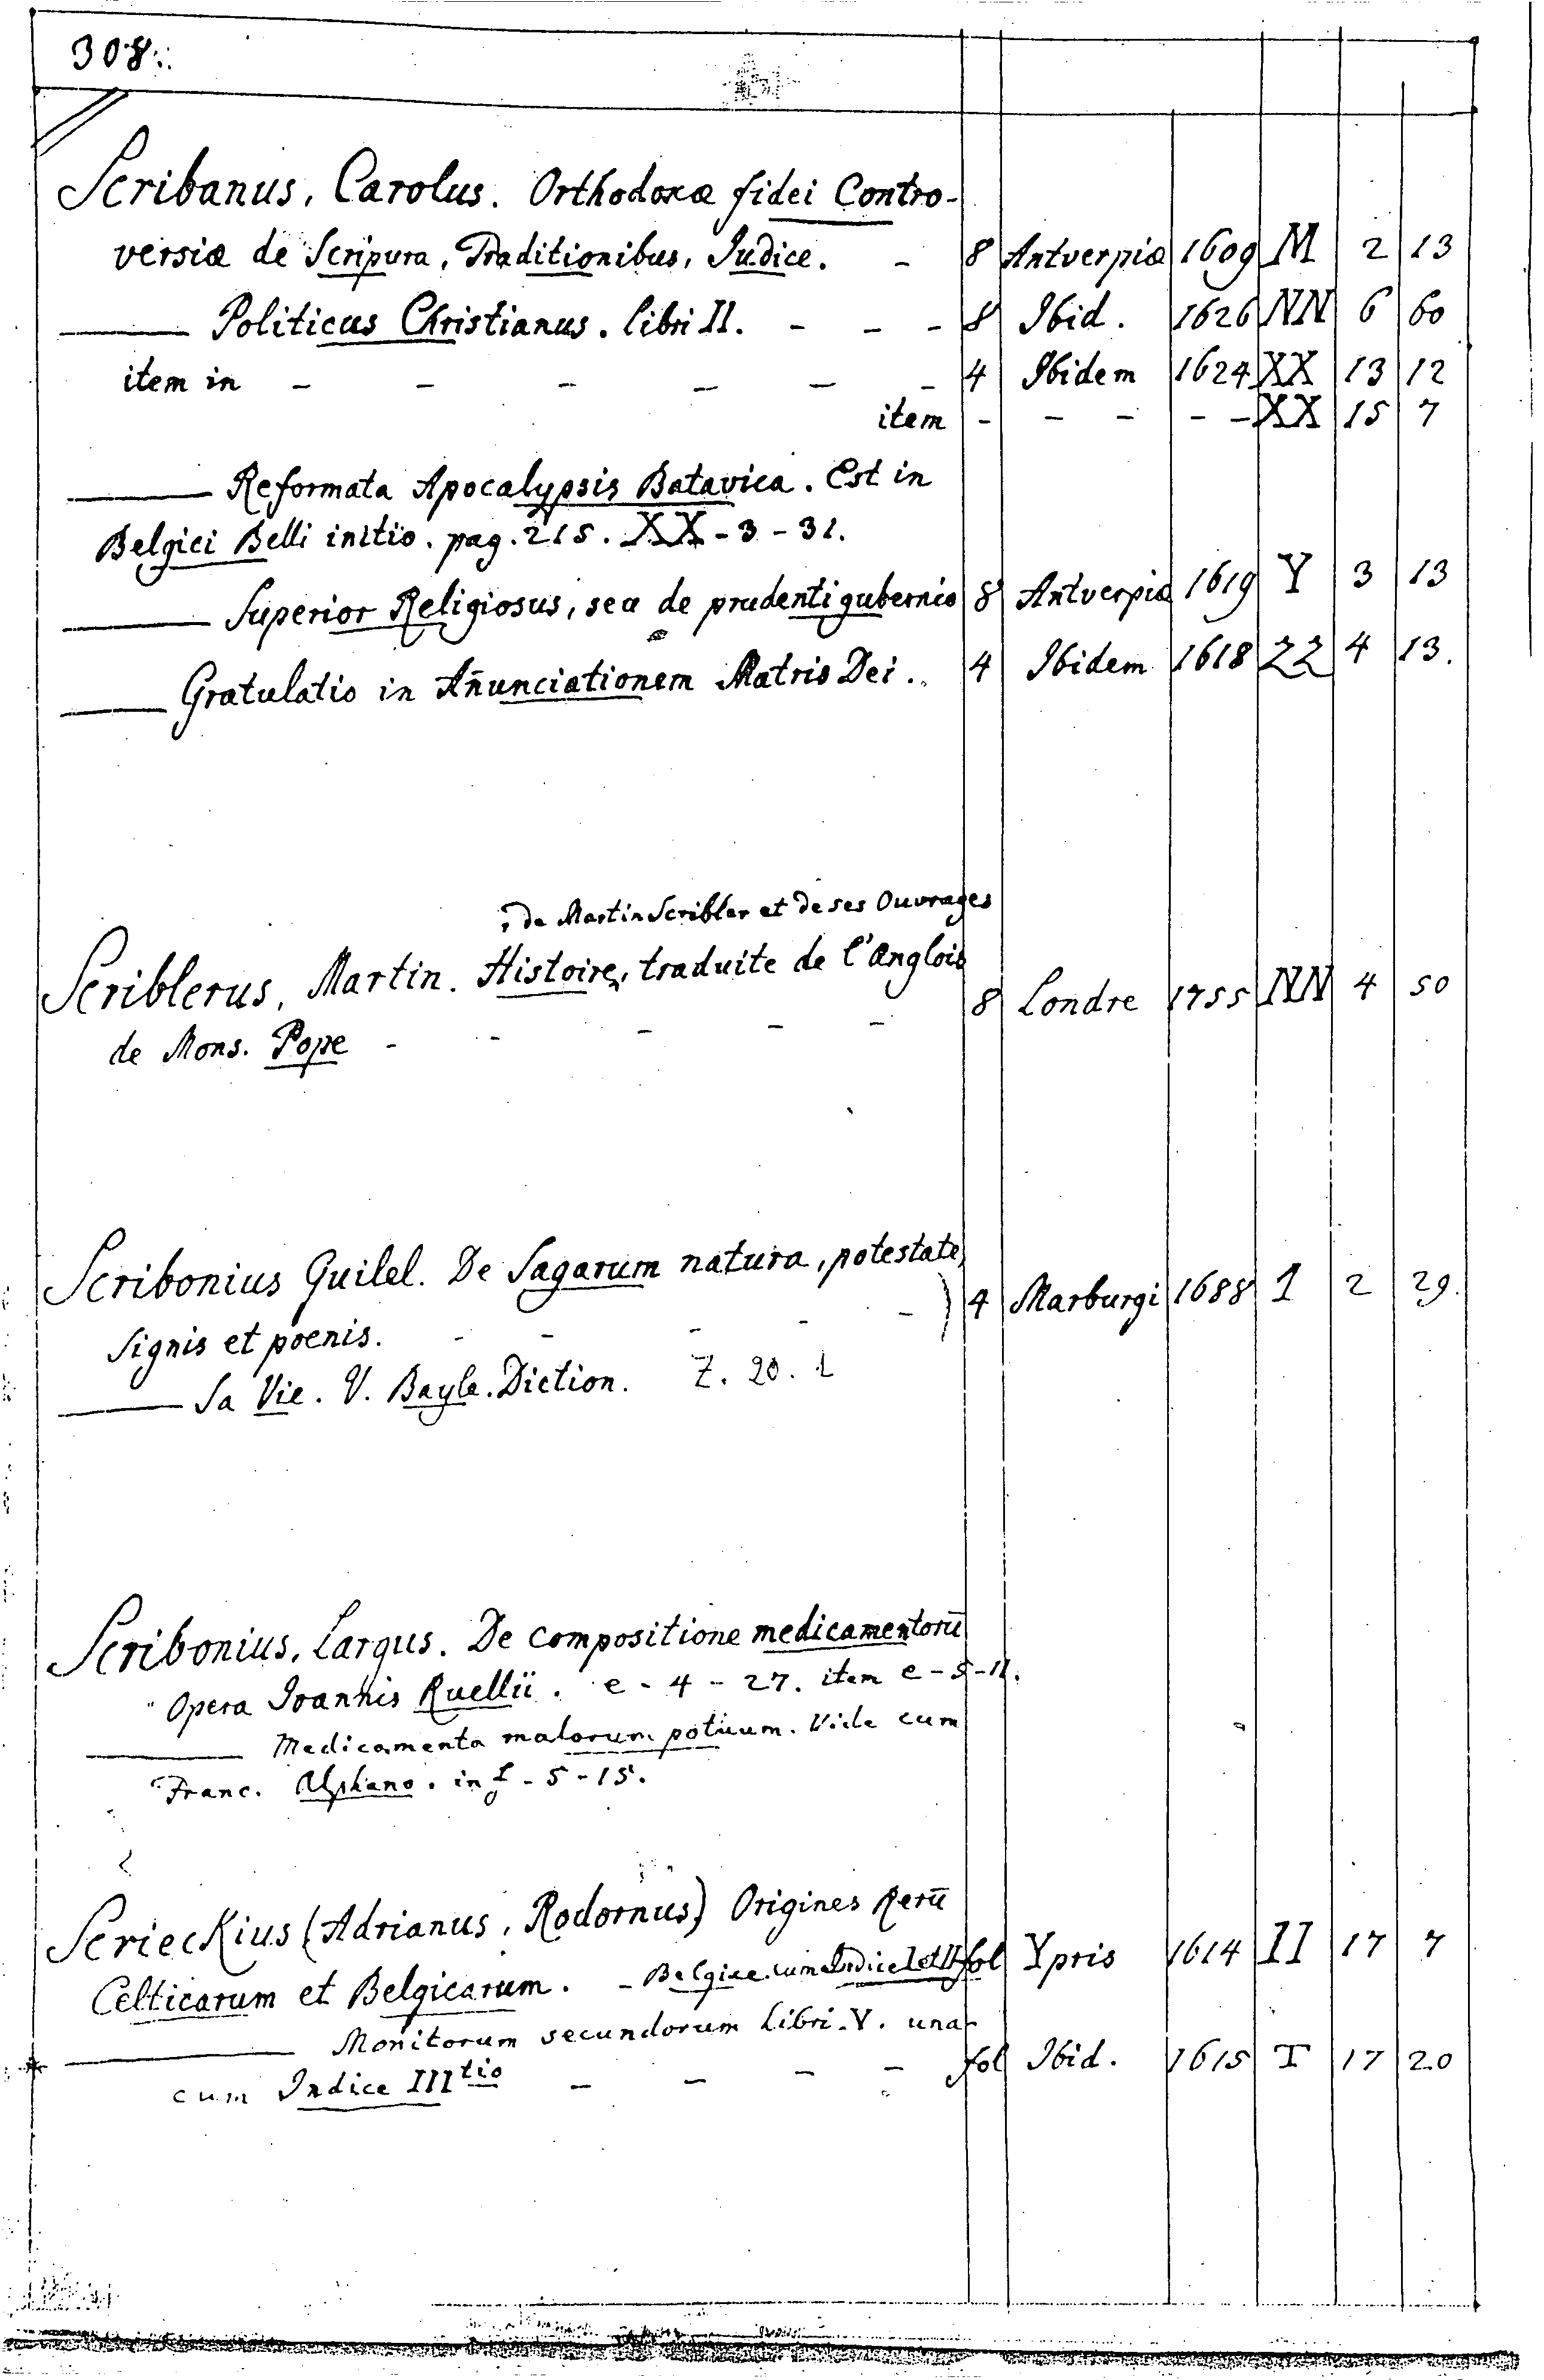 308.
Scribanus, Carolus. Orthodoxæ fidei Contro-
versiæ de Scripura, Traditionibus, Iudice. - 8 Antverpiæ 1609 M 2 13
Politicus Christianus. libri II. - - - 8 Ibid. 1626 NN 6 60
item in - - - - - - 4 Ibidem 1624 XX 13 12
item - - - - - XX 15 7
Reformata Apocalypsis Batavica. Est in
Belgici Belli initio. pag. 215. XX - 3 - 31.
Superior Religiosus, seu de prudenti gubernio 8 Antverpiæ 1619 Y 3 13
Gratulatio in Añunciationem Matris Dei . . 4 Ibidem 1618 ZZ 4 13.
, de Martin Scribler et de ses Ouvrages
Scriblerus, Martin. Histoire, traduite de l'Anglois
de Mons. Pope - - - - - 8 Londre 1755 NN 4 50
Scribonius Guilel. De Sagarum natura, potestate,
signis et poenis. - - - - - ) 4 Marburgi 1688 1 2 29.
Sa Vie. V. Bayle. Diction. Z. 20. 1
Scribonius, Largus. De compositione medicamentorū
Opera Ioannis Ruellii. e - 4 - 27. item e - 5 - 11.
Medicamenta malorum potuum. Vide cum
Franc. Alphano. in f - 5 - 15.
Scrieckius (Adrianus, Rodornus) Origines Rerū
Celticarum et Belgicarum. - Belgice. cum Indice I et II fol Ypris 1614 II 17 7
Monitorum secundorum Libri. V. una
cum Indice III tio - - - - fol Ibid. 1615 T 17 20